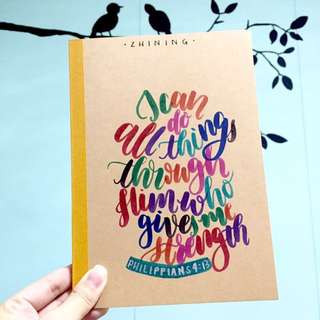 · ZHINING ·
I can
do
all things
through
Him who
gives me
strength
PHILIPPIANS 4:13